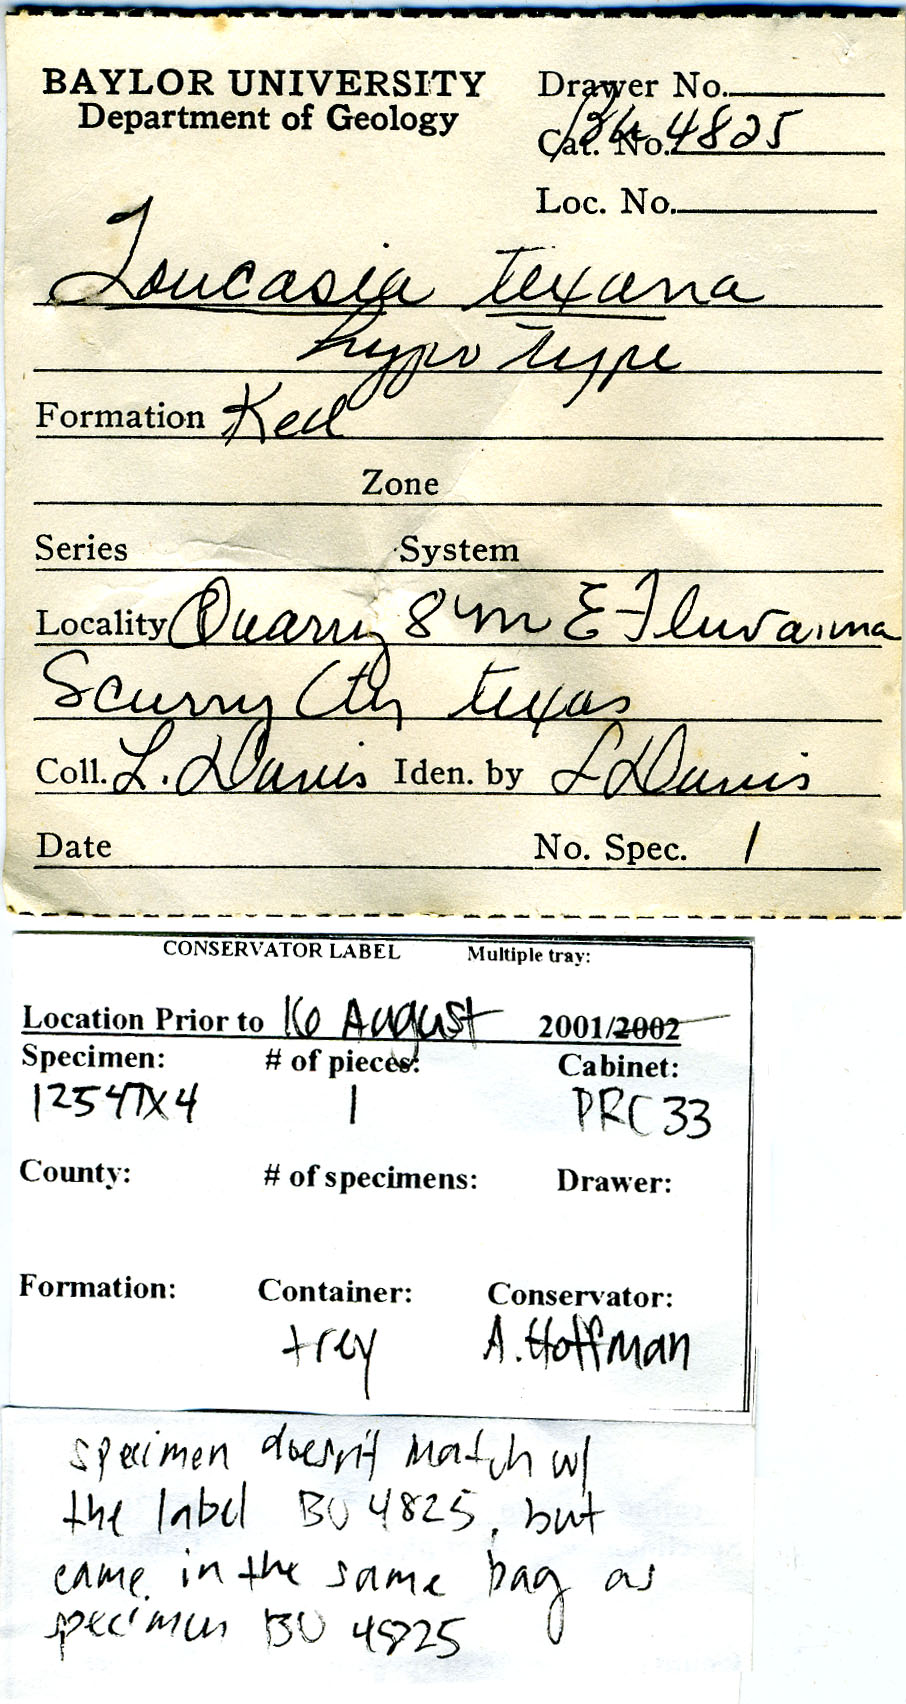 BAYLOR UNIVERSITY
Department of Geology
Drawer No.
Cat. No. BU 4825
Loc. No.
Toucasia texana
hypo type
Formation Ked
Zone
Series System
Locality Quarry 8 m E Fluvanna
Scurry Cty Texas
Coll. L. Davis Iden. by L Davis
Date No. Spec. 1
CONSERVATOR LABEL Multiple tray:
Location Prior to 16 August 2001/2002
Specimen: # of pieces: Cabinet:
1254TX4 1 PRC 33
County: # of specimens: Drawer:
Formation: Container: Conservator:
trey A. Hoffman
specimen doesn't match w/
the label BU 4825, but
came in the same bag as
specimen BU 4825